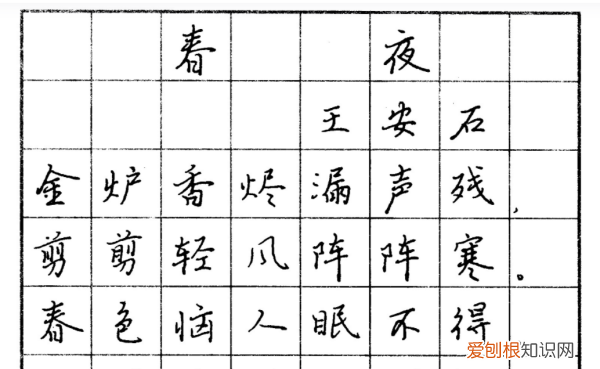 春夜
王安石
金炉香烬漏声残，
剪剪轻风阵阵寒。
春色恼人眠不得
爱刨根知识网